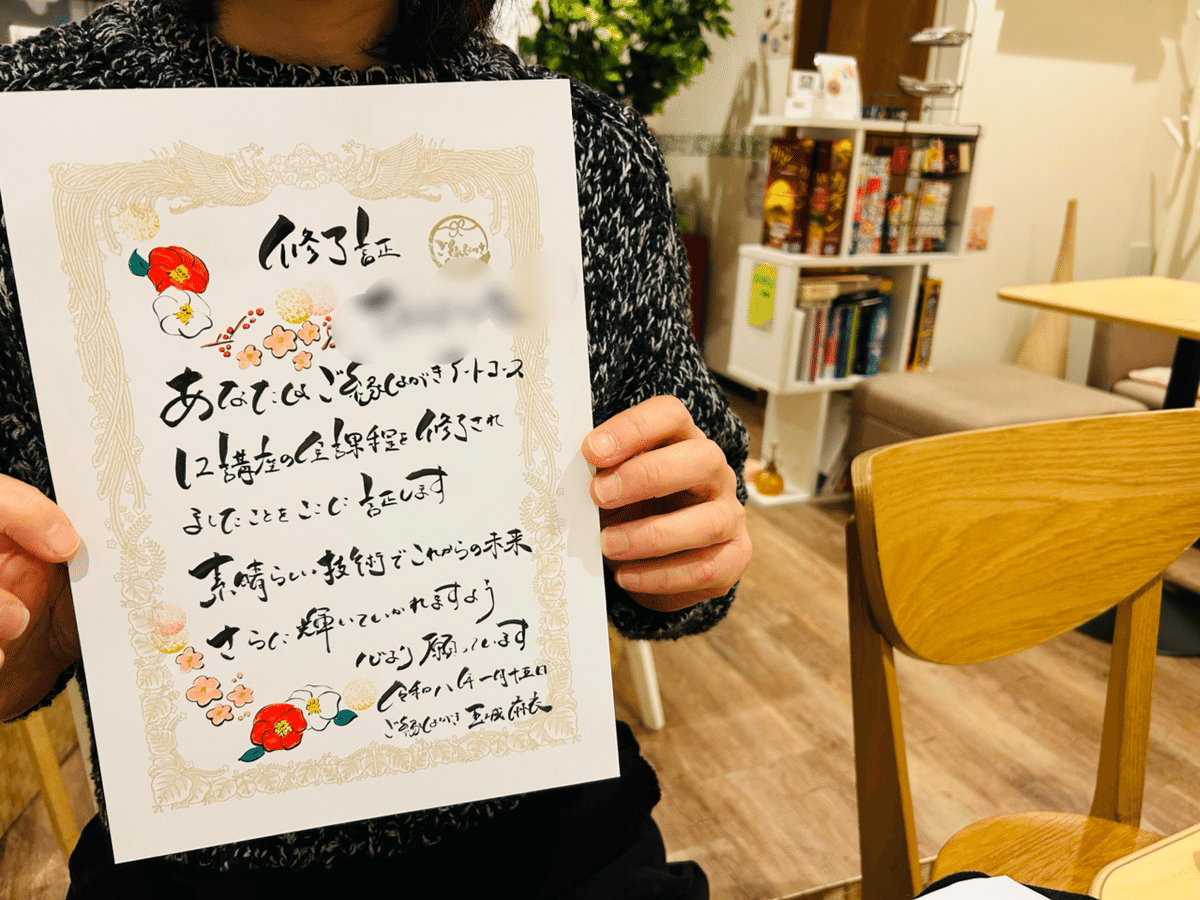 修了証
ご縁はがき
あなたはご縁はがきアートコース
12講座の全課程を修了され
ましたことをここに証します
素晴らしい技術でこれからの未来
さらに輝いていかれますよう
心より願っています
令和八年一月十五日
ご縁はがき 玉城麻衣